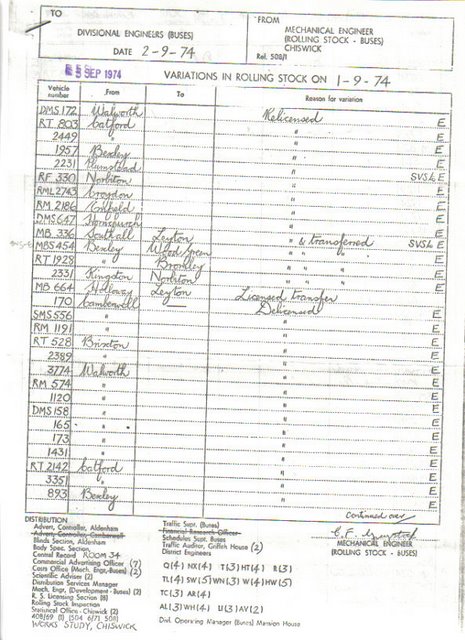 TO
DIVISIONAL ENGINEERS (BUSES)
DATE 2-9-74
FROM
MECHANICAL ENGINEER
(ROLLING STOCK - BUSES)
CHISWICK
Rel. 508/1
5 SEP 1974
VARIATIONS IN ROLLING STOCK ON 1-9-74
Vehicle number From To Reason for variation
DMS 172 Walworth Relicensed E
RT 803 Catford " E
2449 " " E
1957 Bexley " E
2231 Plumstead " E
RF 330 Norbiton " SVSL E
RML 2743 Croydon " E
RM 2186 Enfield " E
DMS 647 Hornchurch " E
MB 336 Southall Leyton " & transferred SVSL E
MBS 454 Bexley Wood Green " " " E
RT 1928 " Bromley " " " E
2331 Kingston Norbiton " " " E
MB 664 Holloway Leyton Licensed transfer E
170 Camberwell — Delicensed E
SMS 556 " " E
RM 1191 " " E
RT 528 Brixton " E
2389 " " E
3774 Walworth " E
RM 574 " " E
1120 " " E
DMS 158 " " E
165 " " E
173 " " E
1431 " " E
RT 2142 Catford " E
3351 " " E
893 Bexley " E
Continued over
MECHANICAL ENGINEER
(ROLLING STOCK - BUSES)
DISTRIBUTION
Advert, Controller, Aldenham
Advert, Controller, Camberwell
Blinds Section, Aldenham
Body Spec. Section,
Central Record ROOM 34
Commercial Advertising Officer (7)
Cours Office (Mech. Engr. Buses) (2)
Scientific Adviser (2)
Distribution Services Manager
Mech. Engr. (Development - Buses) (2)
R. S. Licensing Section (8)
Rolling Stock Inspection
Statistical Office - Chiswick (2)
408/69 (1) (504 6/71 508)
WORKS STUDY, CHISWICK
Traffic Supt. (Buses)
Financial Research Officer
Schedules Supt. Buses
Traffic Auditor, Griffith House (2)
District Engineers
Q(4) NX(4) T(3) HT(4) R(3)
TL(4) SW(5) WN(3) W(4) HW(5)
TC(3) AR(4)
AL(3) WH(4) U(3) AV(2)
Divl. Operating Manager (Buses) Mansion House